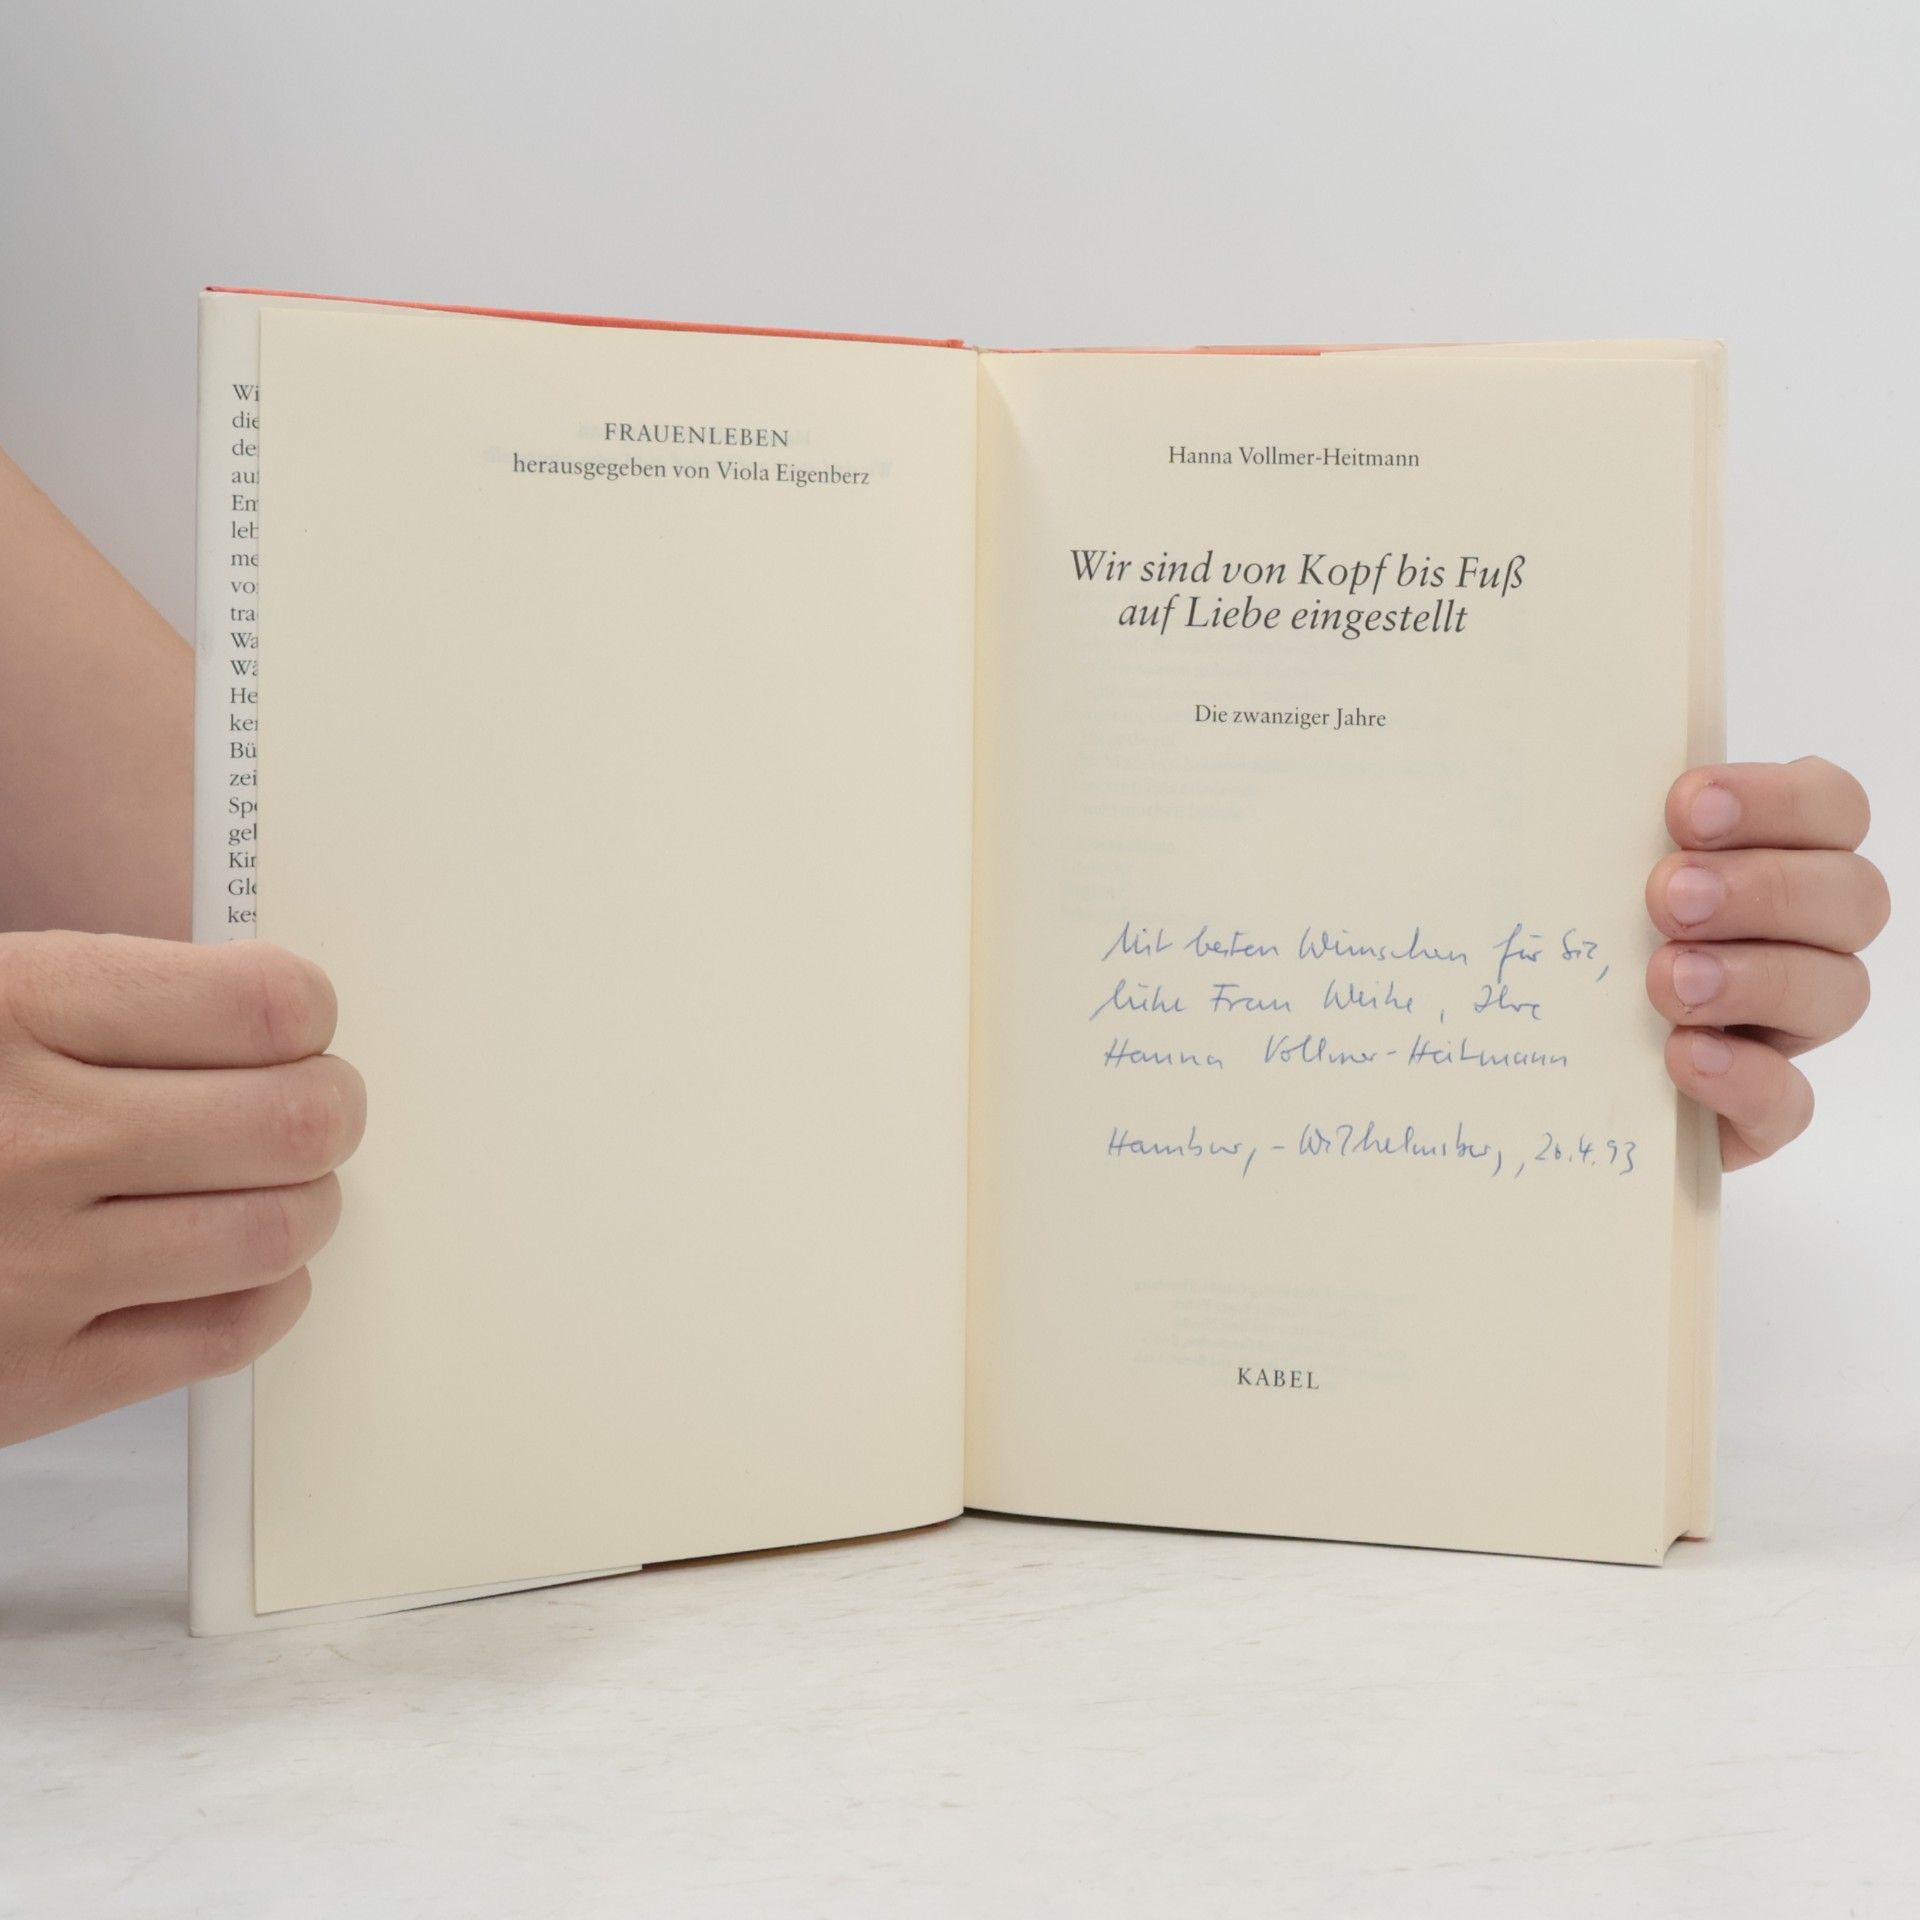 Wi
die
de
auf
Em
leb
me
vo
tra
Wa
Wä
He
ker
Bü
zei
Spo
gel
Kin
Gle
kes
FRAUENLEBEN
herausgegeben von Viola Eigenberz
Hanna Vollmer-Heitmann
Wir sind von Kopf bis Fuß
auf Liebe eingestellt
Die zwanziger Jahre
Mit besten Wünschen für Sie,
liebe Frau Weihe, Ihre
Hanna Vollmer-Heitmann
Hamburg-Wilhelmsburg, 20.4.93
KABEL